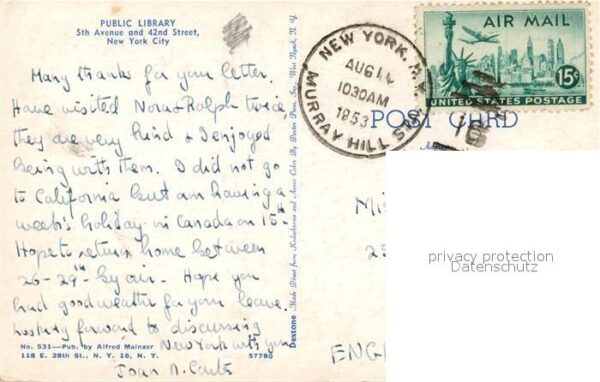 PUBLIC LIBRARY
5th Avenue and 42nd Street,
New York City
Many thanks for your letter.
Have visited Nora & Ralph twice,
they are very kind & I enjoyed
being with them. I did not go
to California but am having a
week's holiday in Canada on 15th
Hope to return home between
26-29th by air. Hope you
had good weather for your leave.
Looking forward to discussing
New York with you
Joan
No. 531—Pub. by Alfred Mainzer
118 E. 28th St., N. Y. 16, N. Y.
57780
Dextone Made Direct from Kodachrome and Ansco Color By Dexter Press, Inc., West Nyack, N. Y.
NEW YORK, N.Y.
AUG 14
1030AM
1953
MURRAY HILL STA.
AIR MAIL
15¢
UNITED STATES POSTAGE
POST CARD
25
privacy protection
Datenschutz